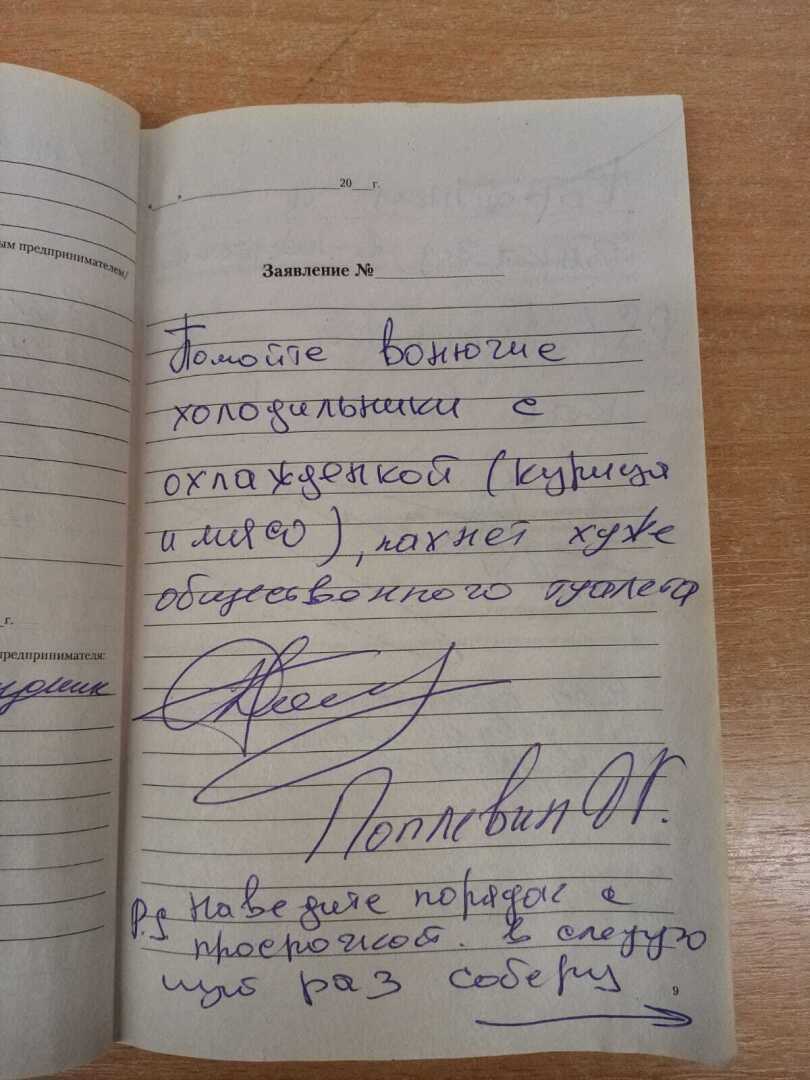 ым предпринимателем/
г.
предпринимателя:
"___"____________20___г.
Заявление №____________
Помойте вонючие
холодильники с
охлажденкой (курица
и мясо), пахнет хуже
общественного туалета
Поплевин
P.S Наведите порядок с
просрочкой. в следую
щий раз соберу
9